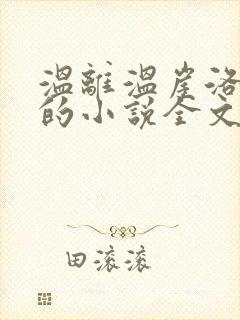 温離温崖洛
的小說全文
田滚滚